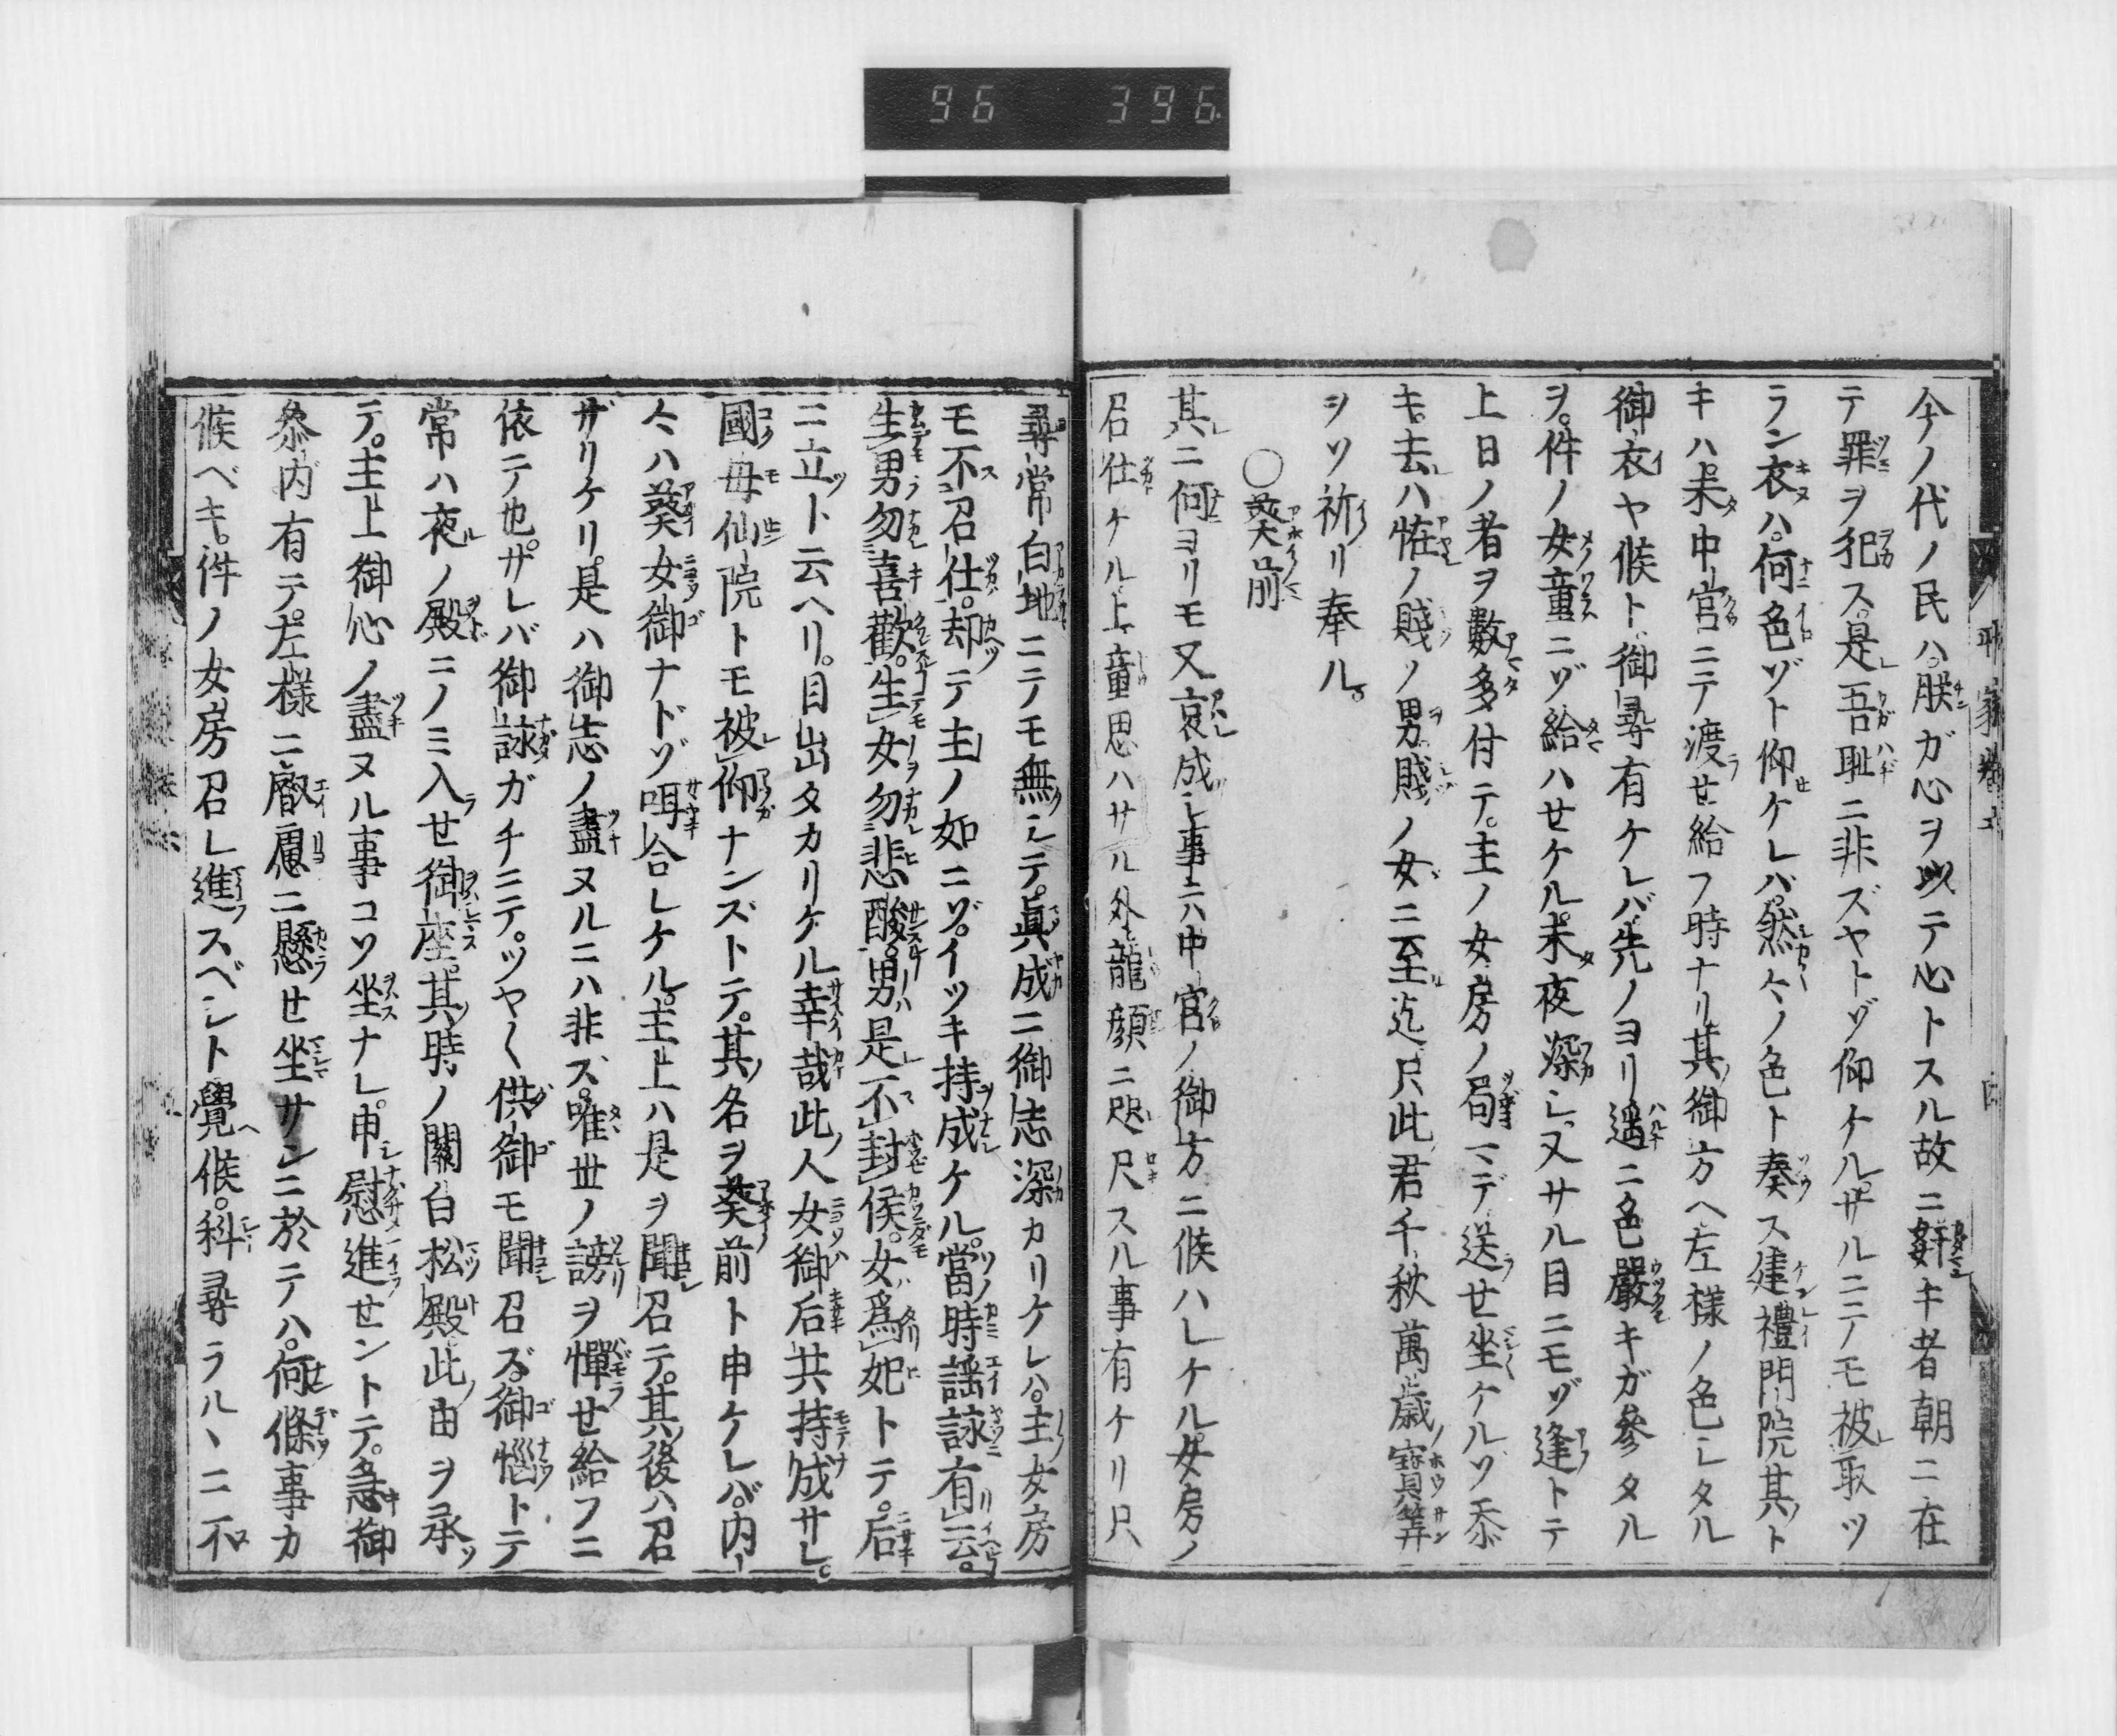 96 396
今ノ代ノ民ハ。朕ガ心ヲ以テ心トスル故ニ姧キ者朝ニ在
テ罪ヲ犯ス。是レ吾ガ耻ニ非ズヤトゾ仰ケル。サルニテモ被レ取ツ
ラン衣ハ。何色ゾト仰ケレバ。然々ノ色ト奏ス建禮門院其ト
キハ未中宮ニテ渡ラせ給フ時ナリ其御方ヘ左様ノ色シタル
御衣ヤ候ト。御尋有ケレバ先ノヨリ遥ニ色嚴キガ參タル
ヲ。件ノ女童ニゾ給ハせケル。未夜深シ又サル目ニモゾ逢トテ
上日ノ者ヲ數多付テ。主ノ女房ノ局マデ送ラせ坐ケルソ忝
キ。去レハ恠ノ賤ノ男賤ノ女ニ至ル迄只此君千秋萬歳ノ寳筭
ヲソ祈リ奉ル。
○葵前
其レニ何ヨリモ又哀レ成シ事ニハ中宮ノ御方ニ候ハレケル女房ノ
召仕ケル上童思ハサル外龍顔ニ咫尺スル事有ケリ只
尋常白地ニテモ無シテ。眞成ニ御志深カリケレハ。主ノ女房
モ不召仕。却テ主ノ如ニゾ。イツキ持成ケル。當時謡詠有云。
生男勿喜歡。生女勿悲酸。男是不封侯。女爲妃トテ。后
ニ立ツト云ヘリ。目出タカリケル幸哉此ノ人女御后共持成サレ。
國母仙院トモ被仰ナンズトテ。其ノ名ヲ葵前ト申ケレバ。内ー
々ハ葵女御ナドゾ咡合レケル。主上ハ是ヲ聞召テ。其後ハ召
ザリケリ。是ハ御志ノ盡ヌルニハ非ズ。唯世ノ謗ヲ憚せ給フニ
依テ也。ザレバ御詠ガチニテ。ツヤ〱供御モ聞召ズ。御惱トテ
常ハ夜ルノ殿ニノミ入ラせ御座。其ノ時ノ關白松殿此ノ由ヲ承ツ
テ。主上御心ノ盡ヌル事コソ坐ナレ。申シ慰進せントテ。急キ御
參内有テ。左様ニ叡慮ニ懸ラせ坐サンニ於テハ。何條事カ
候ベキ。件ノ女房召レ進スベシト覺ヘ候。科尋ラルヽニ不